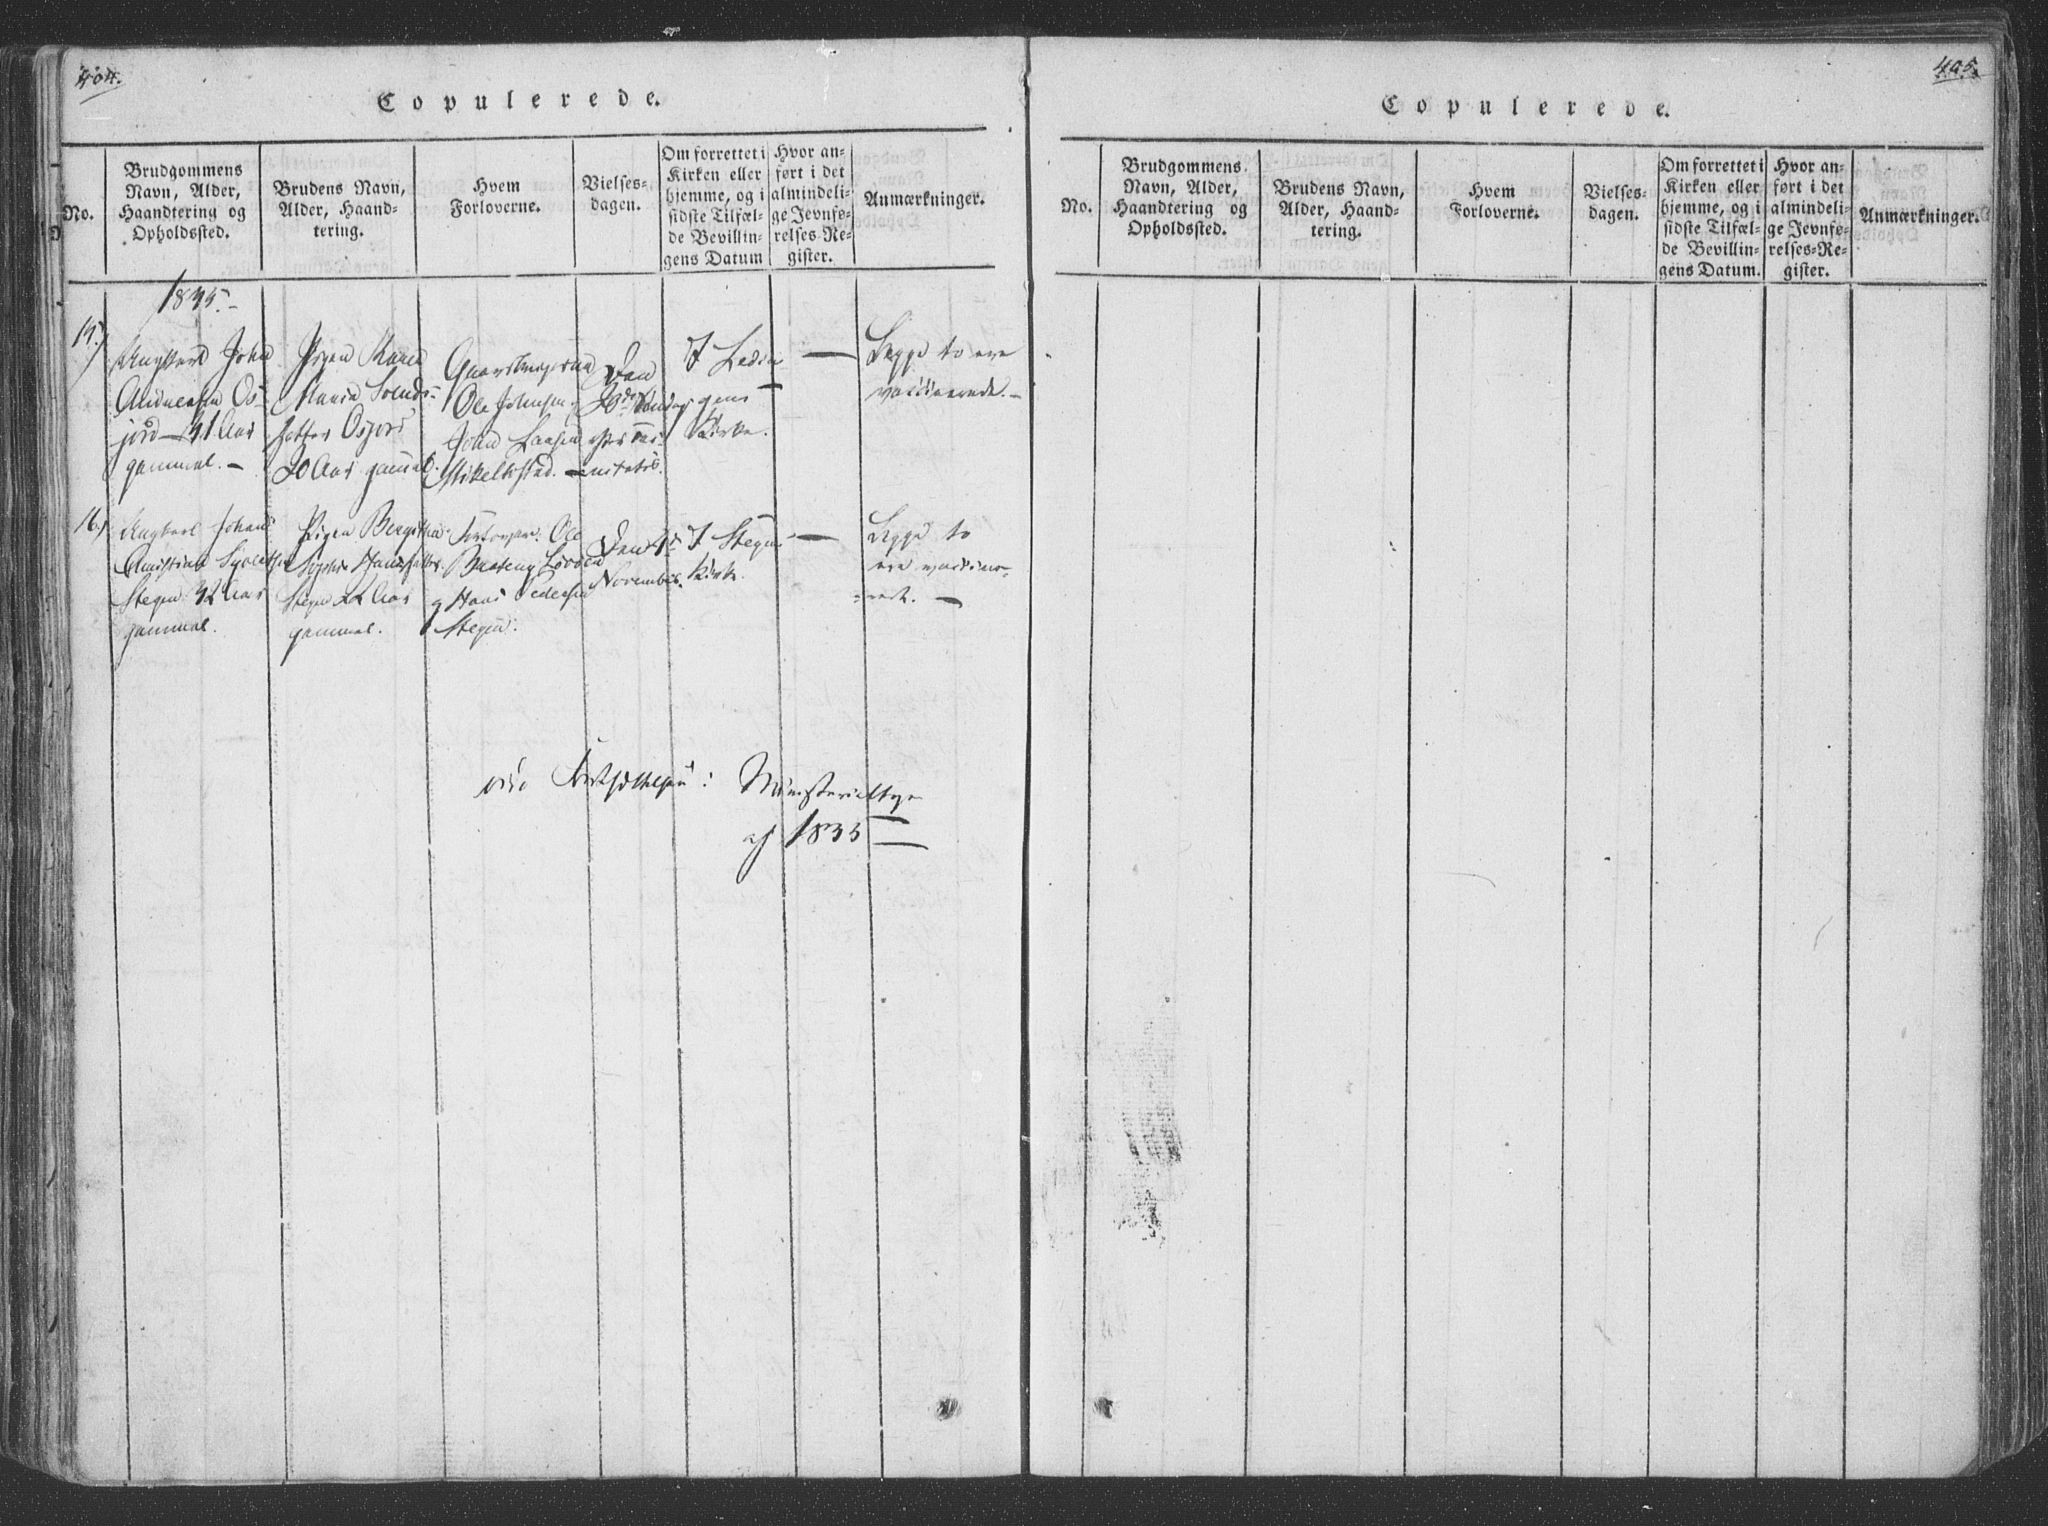 404.
Copulerede.
No.
Brudgommens
Navn, Alder,
Haandtering og
Opholdssted.
Brudens Navn,
Alder, Haand-
tering.
Hvem
Forloverne.
Vielses-
dagen.
Om forrettet i
Kirken eller
hjemme, og i
sidste Tilfæl-
de Bevillin-
gens Datum
Hvor an-
ført i det
almindeli-
ge Jevnfø-
relses-Re-
gister.
Anmærkninger.
1835.
15.)
Ungkarl John
Andersen Os-
jord 31 Aar
gammel.
Pigen Karen
Maria
datter Osjord
20 Aar gammel.
Ole Johnsen
John Larsen
Den
Søndag
efter Tri-
nitatis.
I Ledin-
gens
Kirke.
Begge to ere
vaccinerede.
16.)
Ungkarl Johan
Christian
Stegen 32 Aar
gammel.
Pigen Bergitha
Sophie Hansdatter
Stegen 22 Aar
gammel.
Forlovere: Ole
Løvøen
og Hans Pedersen
Stegen.
Den
November.
I Stegens
Kirke.
Begge to
ere vaccine-
rede.
vide Fortsættelsen i Ministerialbogen
af 1833
405.
Copulerede.
No.
Brudgommens
Navn, Alder,
Haandtering og
Opholdssted.
Brudens Navn,
Alder, Haand-
tering.
Hvem
Forloverne.
Vielses-
dagen.
Om forrettet i
Kirken eller
hjemme, og i
sidste Tilfæl-
de Bevillin-
gens Datum.
Hvor an-
ført i det
almindeli-
ge Jevnfø-
relses-Re-
gister.
Anmærkninger.